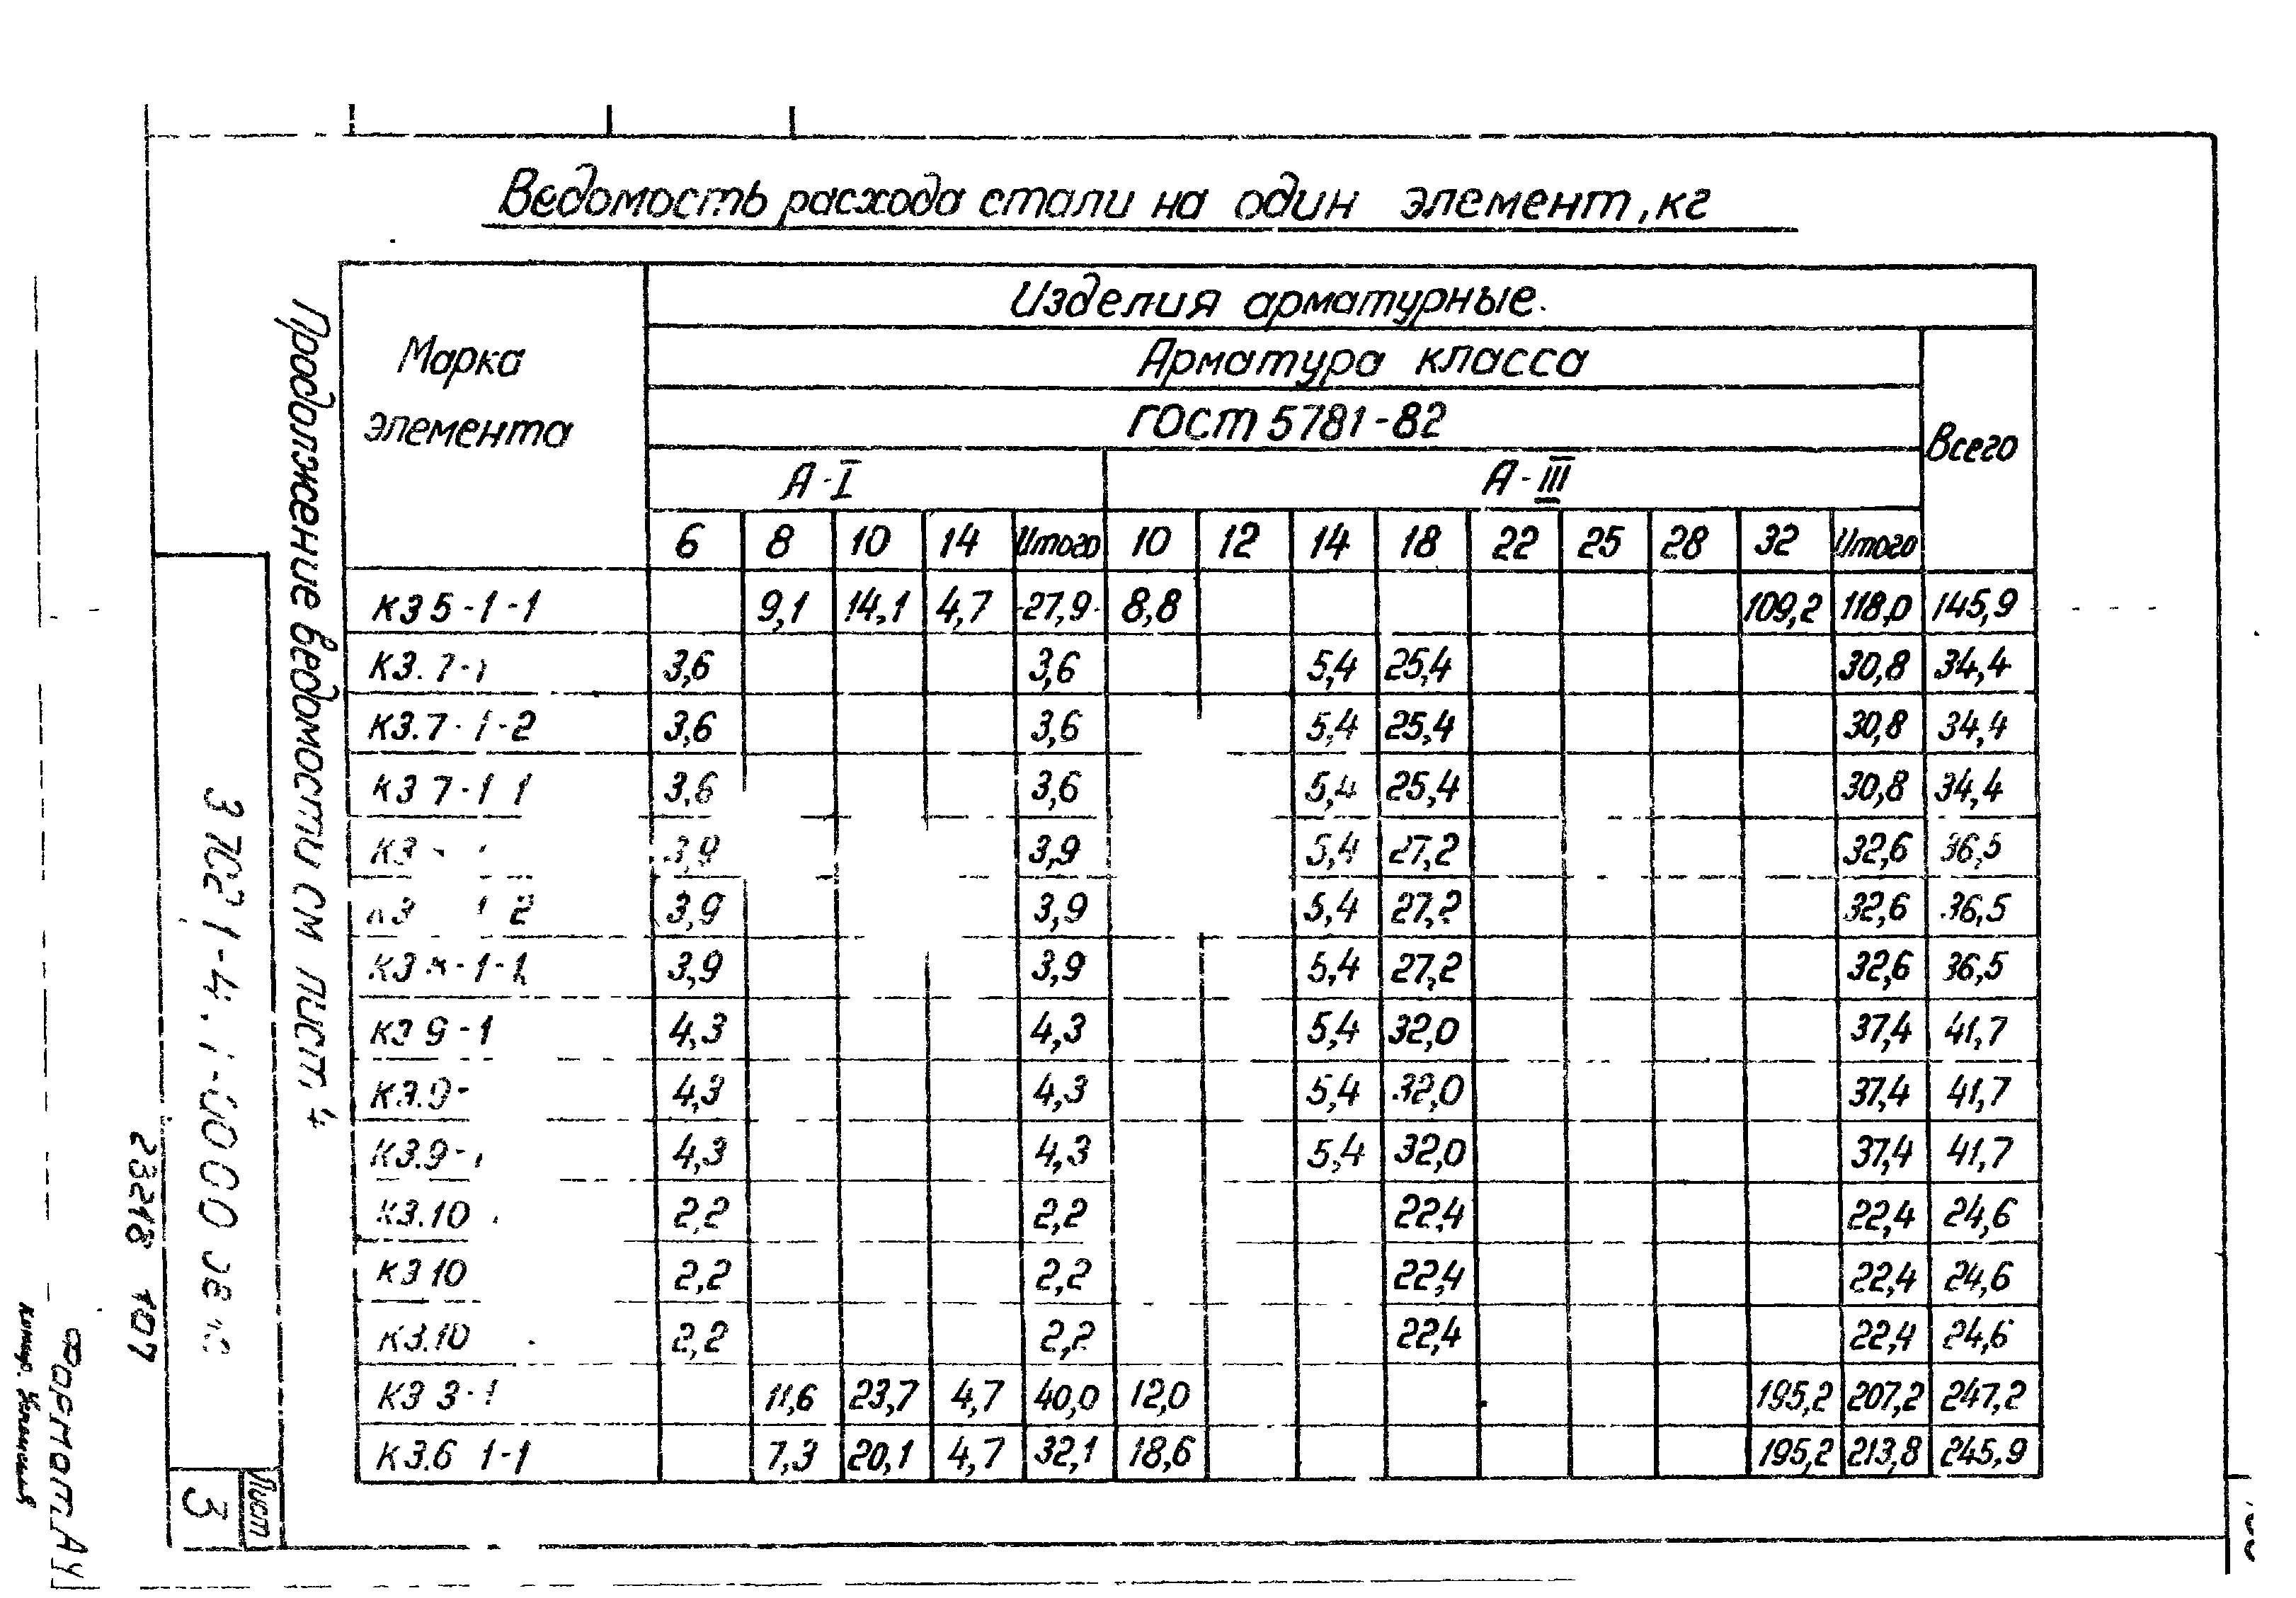 Ведомость расхода стали на один элемент, кг
Марка элемента
Изделия арматурные
Арматура класса
Всего
ГОСТ 5781-82
А-I А-III
6 8 10 14 Итого 10 12 14 18 22 25 28 32 Итого
КЭ 5-1-1 9,1 14,1 4,7 27,9 8,8 109,2 118,0 145,9
КЭ.7-1 3,6 3,6 5,4 25,4 30,8 34,4
КЭ.7-1-2 3,6 3,6 5,4 25,4 30,8 34,4
КЭ 7-1 1 3,6 3,6 5,4 25,4 30,8 34,4
КЭ 3,9 3,9 5,4 27,2 32,6 36,5
КЭ 1 2 3,9 3,9 5,4 27,2 32,6 36,5
КЭ -1-1 3,9 3,9 5,4 27,2 32,6 36,5
КЭ 9-1 4,3 4,3 5,4 32,0 37,4 41,7
КЭ.9- 4,3 4,3 5,4 32,0 37,4 41,7
КЭ.9- 4,3 4,3 5,4 32,0 37,4 41,7
КЭ.10 2,2 2,2 22,4 22,4 24,6
КЭ 10 2,2 2,2 22,4 22,4 24,6
КЭ.10 2,2 2,2 22,4 22,4 24,6
КЭ 3-1 11,6 23,7 4,7 40,0 12,0 195,2 207,2 247,2
КЭ.6 1-1 7,3 20,1 4,7 32,1 18,6 195,2 213,8 245,9
Продолжение ведомости см лист. 4
Лист
3
23218 107
Формат А4